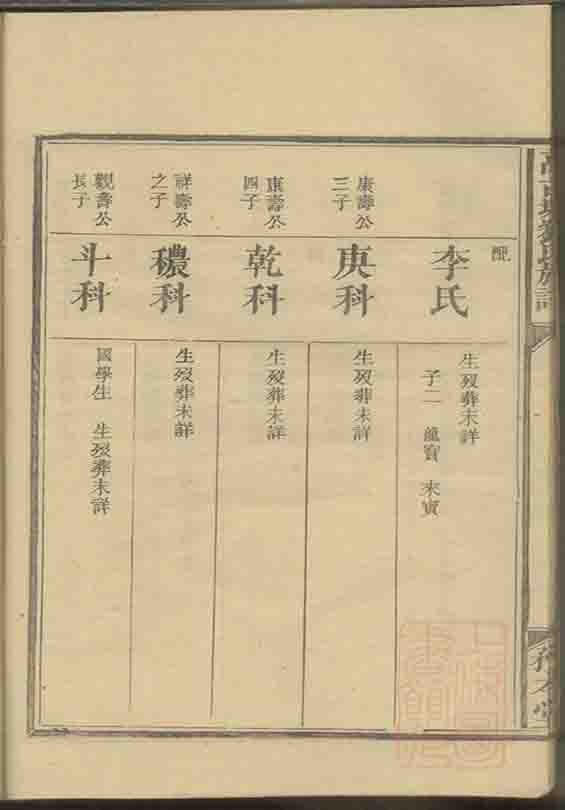 氏族譜
配
李氏
生歿葬未詳
子二 龍寶 來寶
康壽公
三子
庚科
生歿葬未詳
康壽公
四子
乾科
生歿葬未詳
祥壽公
之子
穠科
生歿葬未詳
觀壽公
長子
斗科
國學生 生歿葬未詳